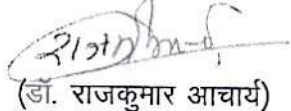 (डॉ. राजकुमार आचार्य)